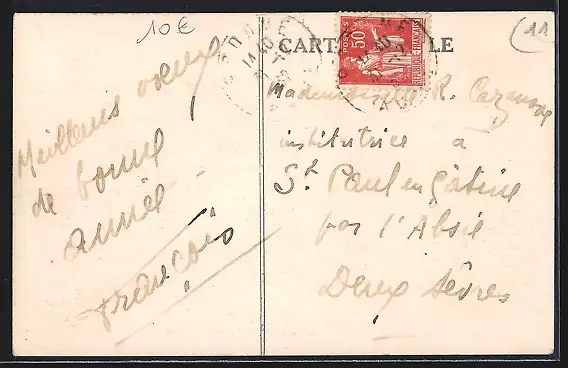 10€
(11
CARTE
LE
POSTES
50c
REPUBLIQUE FRANÇAISE
Meilleurs voeux
de bonne
année
François
Mademoiselle R. Cazanove
institutrice à
St Paul en Gâtine
par l'Absie
Deux Sèvres